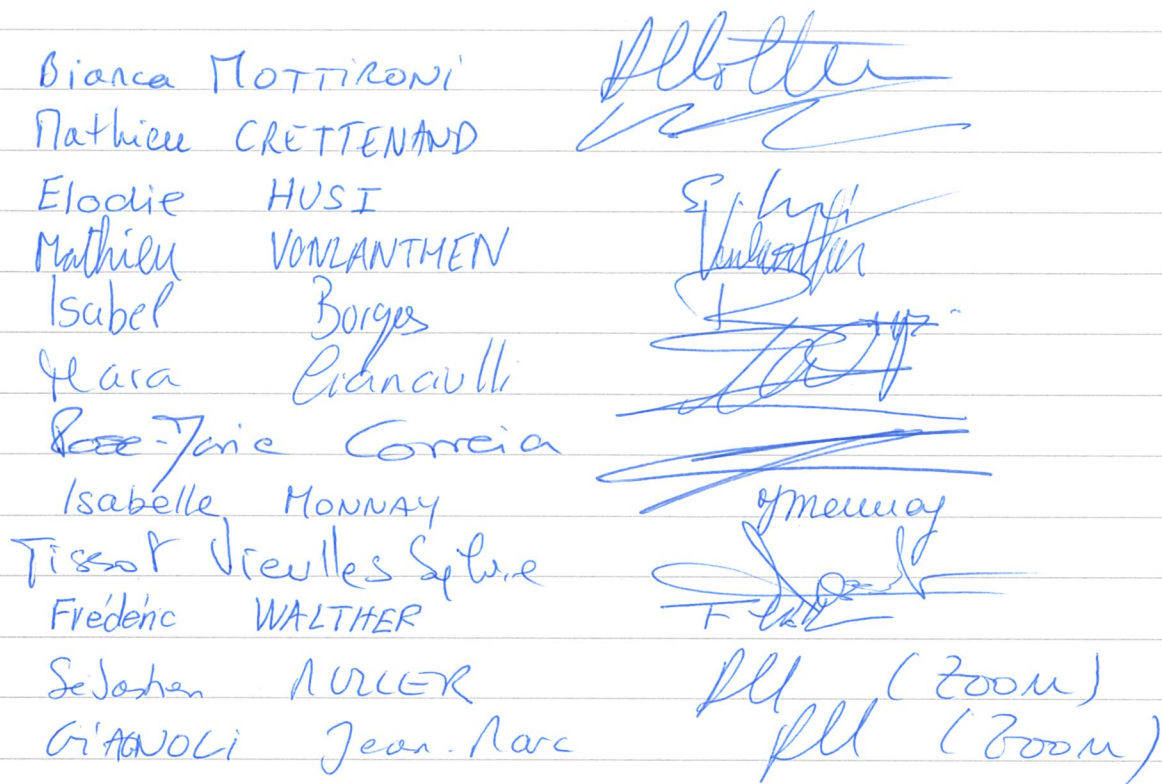 Bianca MOTTIRONI
Mathieu CRETTENAND
Elodie HUSI
Mathieu VONLANTHEN
Isabel Borges
Mara Cianciulli
Rose-Marie Correia
Isabelle MONNAY
Tissot Vieulles Sylvie
Frédéric WALTHER
Sébastien MULLER (ZOOM)
GIAGNOLI Jean-Marc (ZOOM)